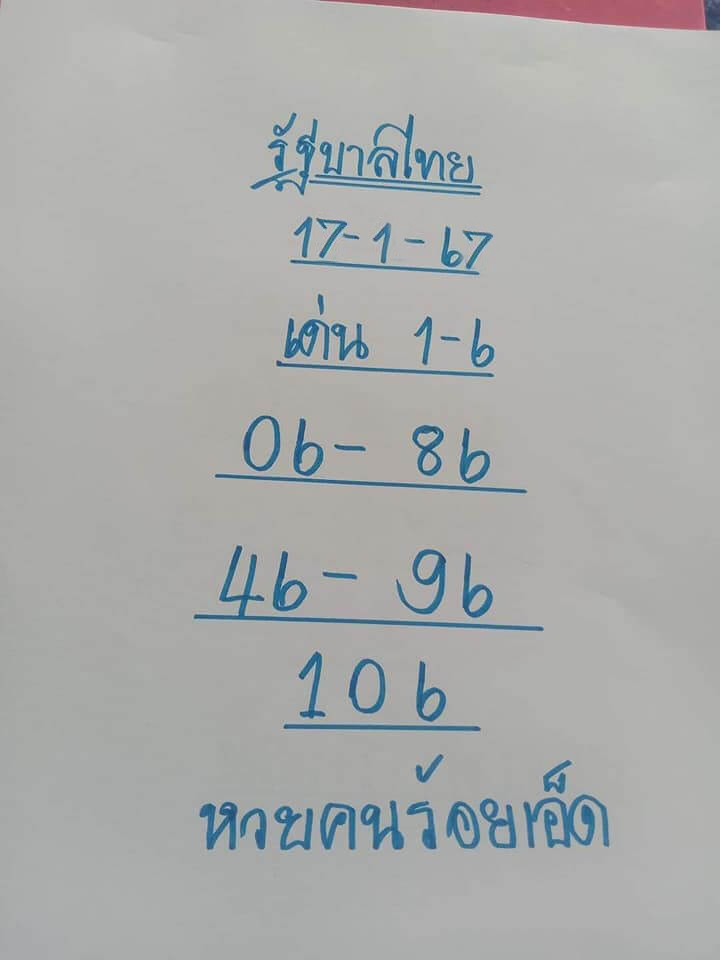 รัฐบาลไทย
17-1-67
เด่น 1-6
06- 86
46- 96
106
หวยคนร้อยเอ็ด